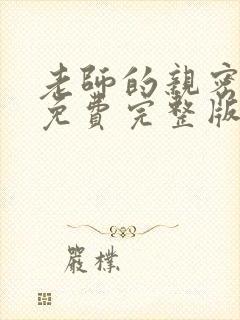 老師的親密
免費完整版
嚴樸